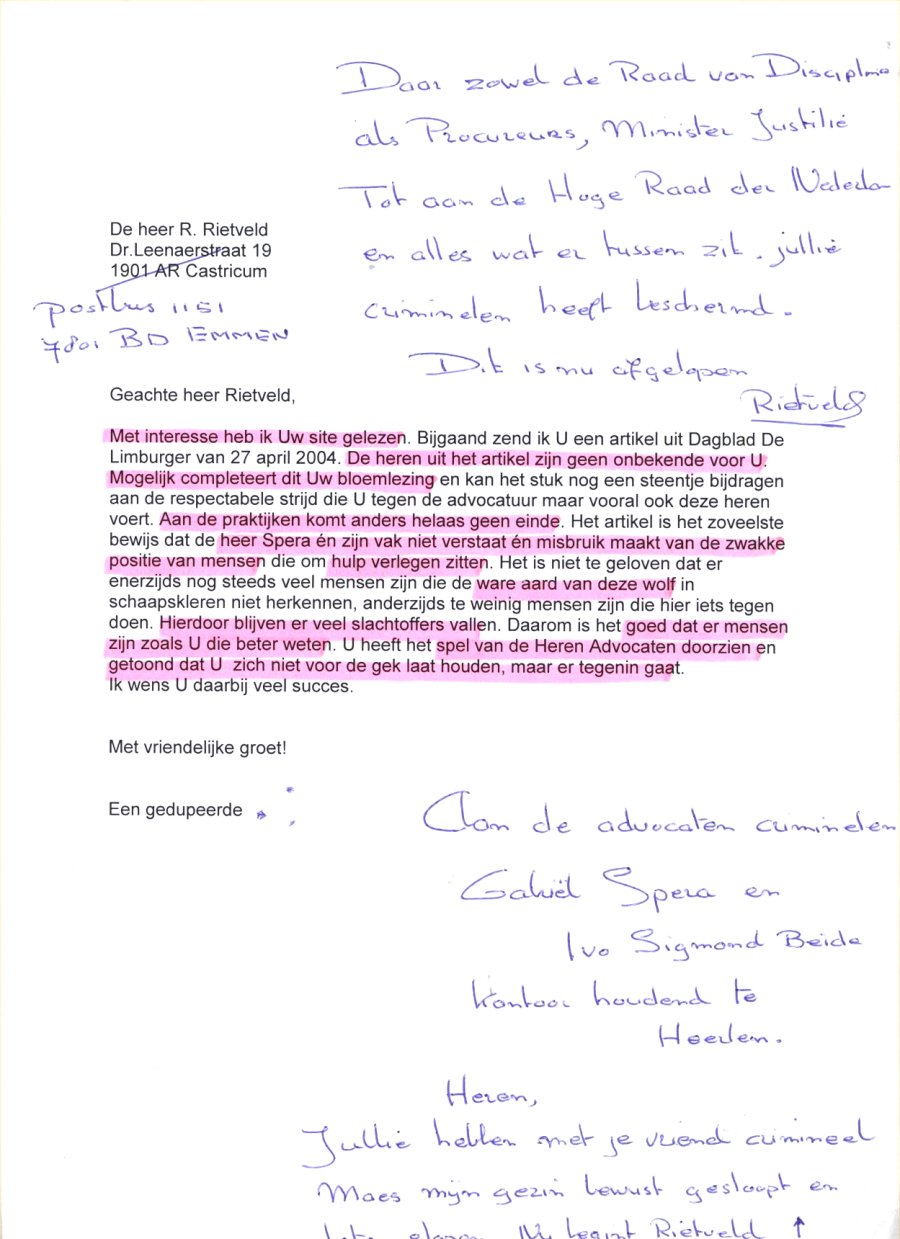 Daar zowel de Raad van Discipline
als Procureurs, Minister Justitie
Tot aan de Hoge Raad der Nederlan
en alles wat er tussen zit. jullie
criminelen heeft beschermd.
Dit is nu afgelopen
Rietveld
De heer R. Rietveld
Dr.Leenaerstraat 19
1901 AR Castricum
postbus 1151
7801 BD EMMEN
Geachte heer Rietveld,
Met interesse heb ik Uw site gelezen. Bijgaand zend ik U een artikel uit Dagblad De
Limburger van 27 april 2004. De heren uit het artikel zijn geen onbekende voor U.
Mogelijk completeert dit Uw bloemlezing en kan het stuk nog een steentje bijdragen
aan de respectabele strijd die U tegen de advocatuur maar vooral ook deze heren
voert. Aan de praktijken komt anders helaas geen einde. Het artikel is het zoveelste
bewijs dat de heer Spera én zijn vak niet verstaat én misbruik maakt van de zwakke
positie van mensen die om hulp verlegen zitten. Het is niet te geloven dat er
enerzijds nog steeds veel mensen zijn die de ware aard van deze wolf in
schaapskleren niet herkennen, anderzijds te weinig mensen zijn die hier iets tegen
doen. Hierdoor blijven er veel slachtoffers vallen. Daarom is het goed dat er mensen
zijn zoals U die beter weten. U heeft het spel van de Heren Advocaten doorzien en
getoond dat U zich niet voor de gek laat houden, maar er tegenin gaat.
Ik wens U daarbij veel succes.
Met vriendelijke groet!
Een gedupeerde
Aan de advocaten criminelen
Gabriël Spera en
Ivo Sigmond Beide
kantoor houdend te
Heerlen.
Heren,
Jullie hebben met je vriend crimineel
Maes mijn gezin bewust gesloopt en
Nu begint Rietveld